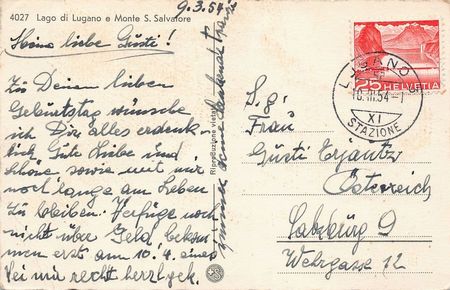 4027 Lago di Lugano e Monte S. Salvatore
9.3.54
Meine liebe Gusti!
Zu Deinem lieben
Geburtstag wünsche
ich Dir alles erdenk-
lich Gute Liebe und
Schöne, sowie mit mir
noch lange am Leben
zu bleiben. Verfüge noch
nicht über Geld, bekom
men erst am 10.4. eines
bei mir recht herzl.
Riproduzione vietata
HELVETIA
25
LUGANO 1
10.III.54
XI
STAZIONE
S.g.
Frau
Gusti
Österreich
Salzburg 9
Wehrgasse 12